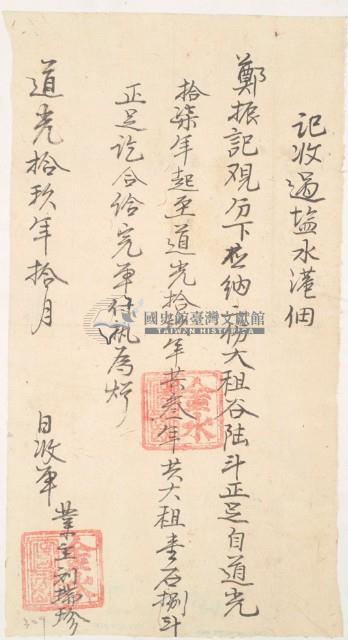 記收過塩水港佃
鄭振記觀分下应納務大租谷陸斗正足自道光
拾柒年起至道光拾玖年共叁年共大租壹石捌斗
正足訖合給完单付執為炤
道光拾玖年拾月 日收单
業主劉瑞珍
國史館臺灣文獻館
TAIWAN HISTORICA